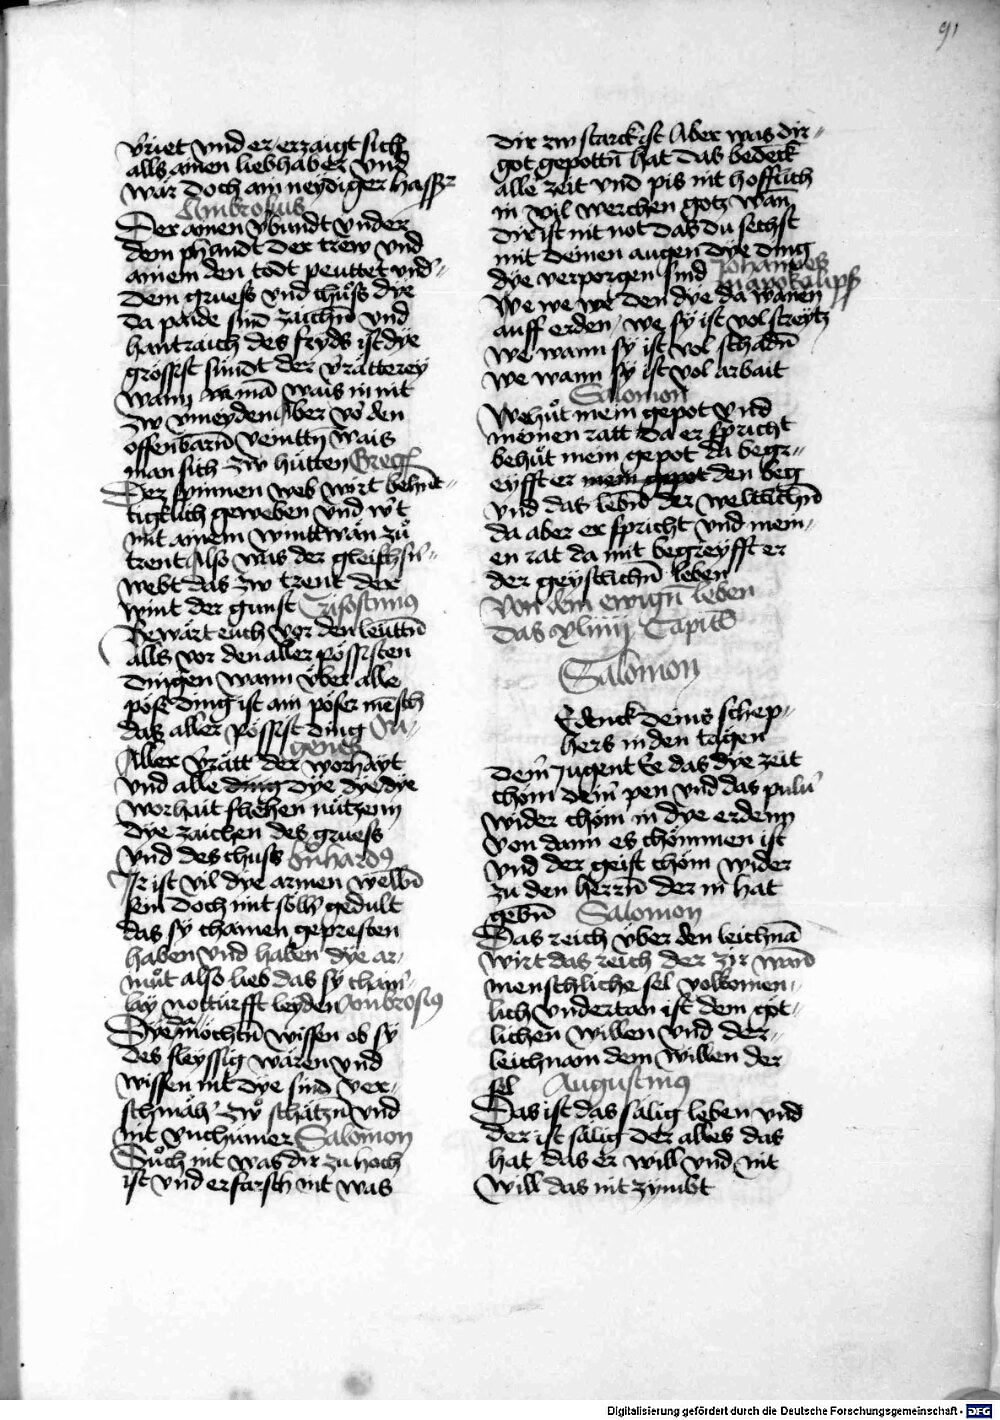 91
vriet vnd er erzaigt sich
alls ainen liebhaber vnd
wär doch ain neydiger hasser
Ambrosius
Der ainen vbundt vnder
dem phandt der trew vnd
ainem den todt peuttet vnd
dem gruess vnd chuss dye
da paide sind zaichen vnd
hantraich des fryds ist dye
grössist sündt der vrätterey
wann niman wais in nit
zw vmeyden Aber vor den
offenbarn veintten wais
man sich zw hütten Greg
Der spinnen web wirt behut
tigklich geweben vnd wirt
mit ainem winttwän zu
trent Also was der gleichs
webt das zw trent der
wint der gunst Crisostimus
Bewart euch vor den leuttn
alls vor den aller pössisten
dingen wann über alle
pöse ding ist ain pöser mensch
das aller pössist ding Ori
genes
Aller vrätt der worhayt
vnd alle dye dye dye
worhait fliehen nützenn
dye zaichen des gruess
vnd des chuss bernhardus
Ir ist vil dye armen wellen
sein doch mit sölher gedult
das sy chainen gepresten
haben vnd haben dye ar
mut also lieb das sy chain
lay notturfft leyden Ambrosius
Dye da möchten wissen ob sy
des fleyssig wären vnd
wissen nit dye sind ver
schmäh zw schätzn vnd
nit vnchumer Salomon
Such nit was dir zu hoch
ist vnd erfarsch nit was
dir zw starck ist Aber was dir
got gepottn hat das bedenck
alle zeit vnd pis nit hofflich
in vil werchen gotz wan
dir ist nit not das du sechst
mit deinen augen dye ding
dye verporgen sind Johannes
in apokalipsis
We we we den dye da wanen
auff erden we sy ist vol streytz
we wann sy ist vol schadn
we wann sy ist vol arbait
Salomon
Wehut mein gepot vnd
meinen ratt da er spricht
behut mein gepot da begr
eyfft er mein gepot den beg
vnd das lebn der weltlichn
da aber er spricht vnd mein
en rat da mit begreyfft er
der geystlichn leben
Von dem ewign leben
das xliiij Capitl
Salomon
Edenck deins schep
hers in den tägen
deiner Jugent Ee das dye zeit
chöm deiner pen vnd das puluer
wider chöm in dye erdenn
von dann es chömmen ist
vnd der geist chöm wider
zu den herrn der in hat
gebn Salomon
Das reich über den leichnam
wirt das reich der zir wann
menschliche sel volkomen
lich vndertan ist dem got
lichen willen vnd der
leichnam dem willen der
sel Augustinus
Das ist das salig leben vnd
der ist salig der alles das
hat das er will vnd nit
will das nit zymbt
Digitalisierung gefördert durch die Deutsche Forschungsgemeinschaft - DFG